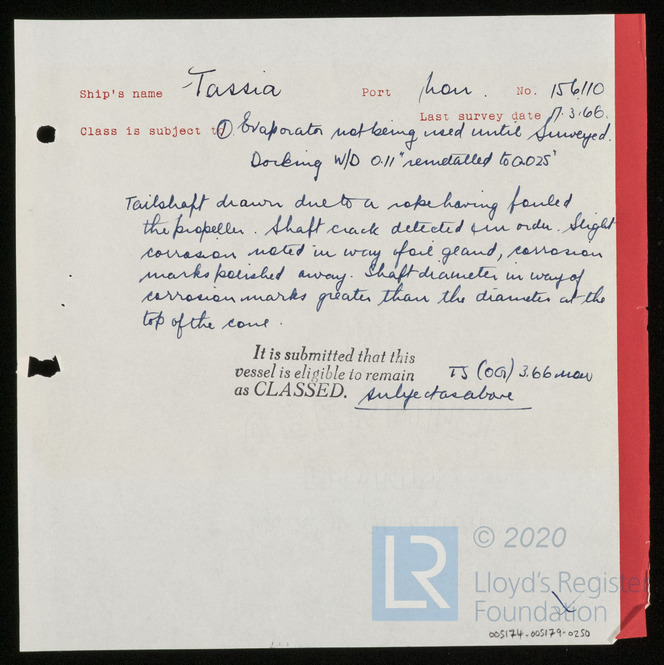 Ship's name Tassia Port Mon. No. 156110
Last survey date 17.3.66.
Class is subject to ① Evaporator not being used until surveyed.
Docking W/D 0.11" remetalled to 0.025"
Tailshaft drawn due to a rope having fouled
the propeller. Shaft crack detected & in order. Slight
corrosion noted in way of oil gland, corrosion
marks polished away. Shaft diameter in way of
corrosion marks greater than the diameter at the
top of the cone.
It is submitted that this
vessel is eligible to remain
as CLASSED.
TS (OG) 3.66 Mon
subject as above
LR
© 2020
Lloyd's Register
Foundation
005174-005179-0250